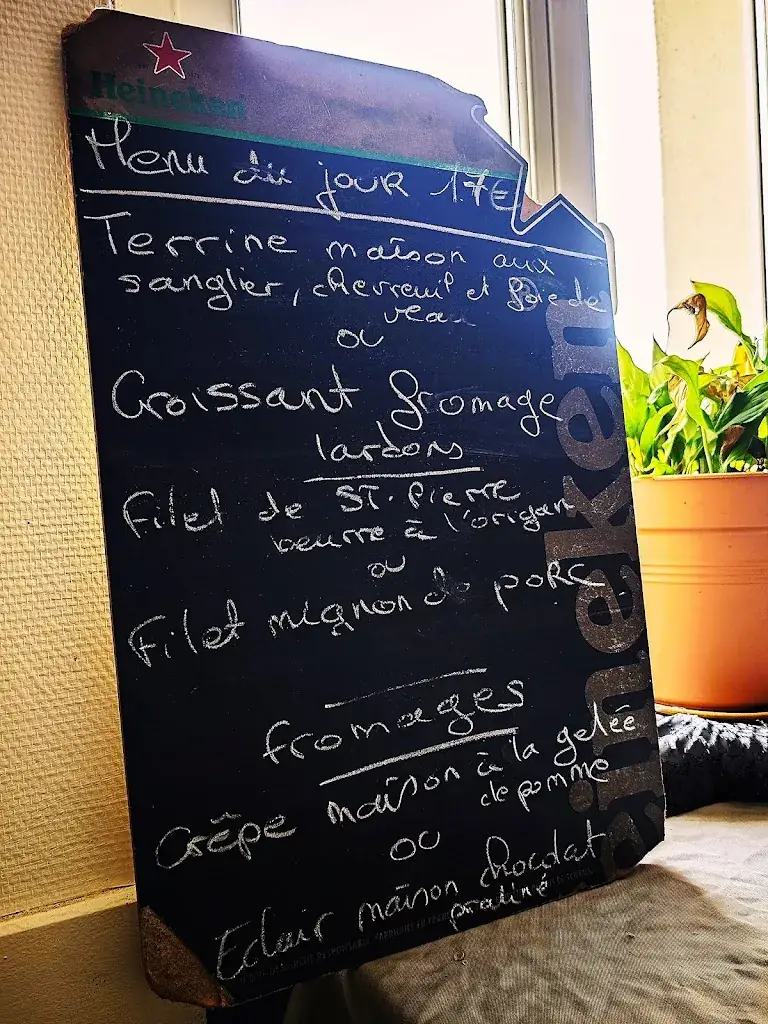 Heineken
Menu du jour 17€
Terrine maison aux
sanglier, chevreuil et foie de
veau
ou
Croissant fromage
lardons
Filet de ST. Pierre
beurre à l'origan
ou
Filet mignon de porc
fromages
Crêpe maison à la gelée
de pomme
ou
Eclair maison chocolat
praliné
Heineken